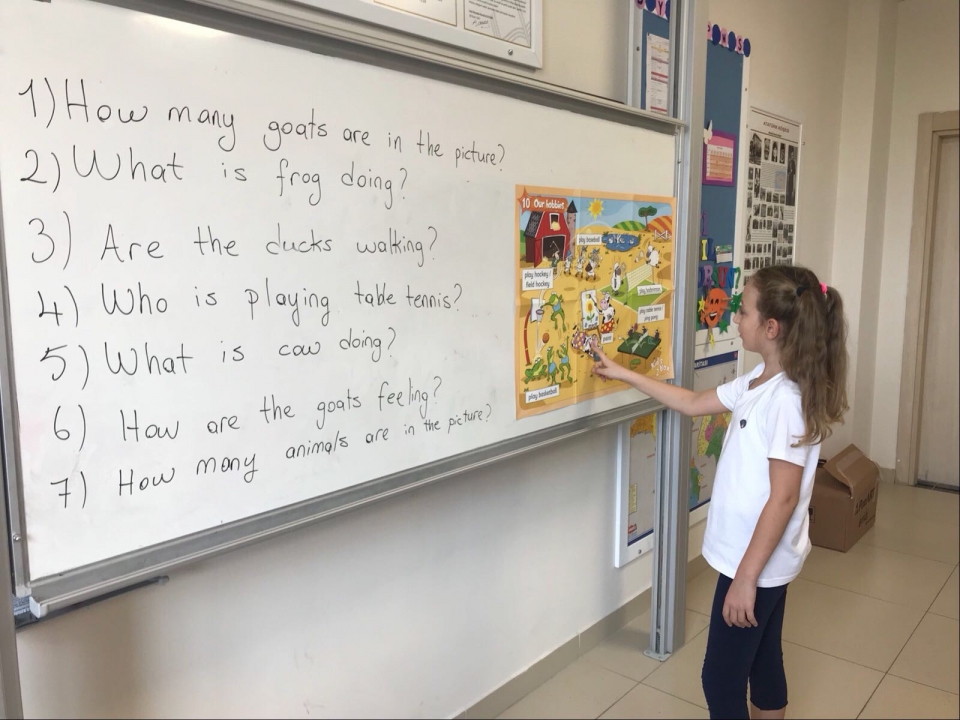 1) How many goats are in the picture?
2) What is frog doing?
3) Are the ducks walking?
4) Who is playing table tennis?
5) What is cow doing?
6) How are the goats feeling?
7) How many animals are in the picture?
10 Our hobbies
play baseball
play hockey /
field hockey
play badminton
play table tennis /
ping pong
paint
play basketball